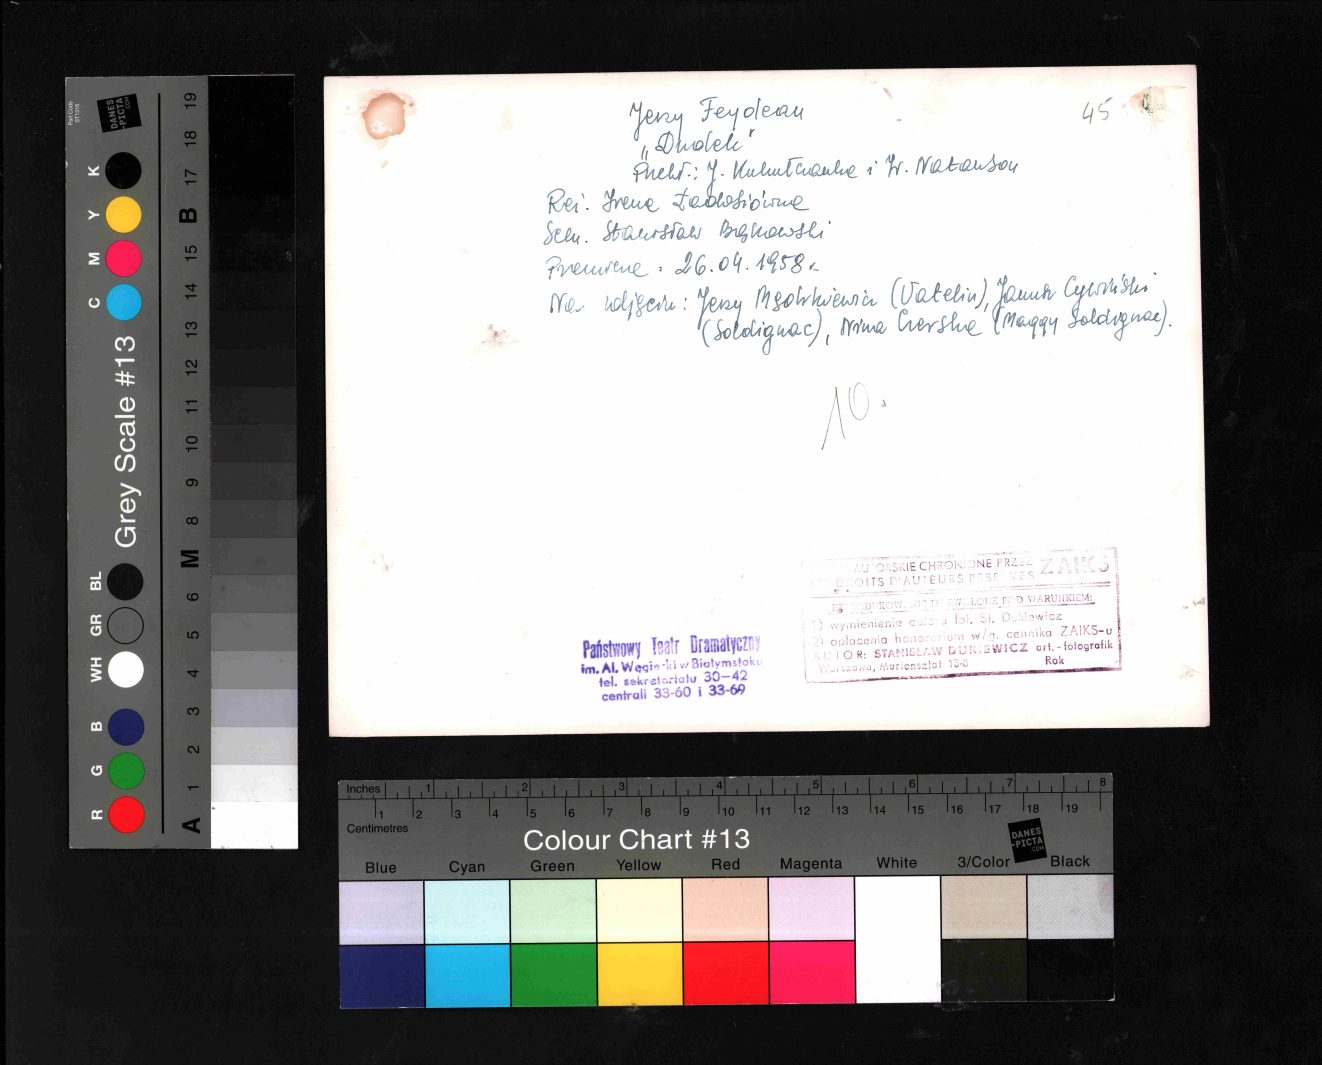 Jerzy Feydeau
45
„Dudek"
Przekł.: J. i W. Natanson
Reż. Irena Ładosiówna
Scen. Stanisław Bąkowski
Premiera: 26.04.1958 r.
Na zdjęciu: Jerzy (Vatelin), Janusz Cywiński
(Soldignac), Nina Czerska (Maggy Soldignac).
10.
Państwowy Teatr Dramatyczny
im. Al. Węgierki w Białymstoku
tel. sekretariatu 30-42
centrali 33-60 i 33-69
AUTORSKIE CHRONIONE PRZEZ ZAIKS
DROITS D'AUTEURS RESERVES
DOZWOLONE POD WARUNKIEM:
1) wymienienie autora fot. St. Dukiewicz
2) opłacenia honorarium w/g. cennika ZAIKS-u
AUTOR: STANISŁAW DUKIEWICZ art.-fotografik
Warszawa, Mariensztat 13-8 Rok
Grey Scale #13
DANES
-PICTA
.COM
K
Y
M
C
BL
GR
WH
B
G
R
19
18
17
B
15
14
13
12
11
10
9
8
M
6
5
4
3
2
1
A
Inches 1 2 3 4 5 6 7 8
1 2 3 4 5 6 7 8 9 10 11 12 13 14 15 16 17 18 19
Centimetres
Colour Chart #13
DANES
-PICTA
.COM
Blue Cyan Green Yellow Red Magenta White 3/Color Black